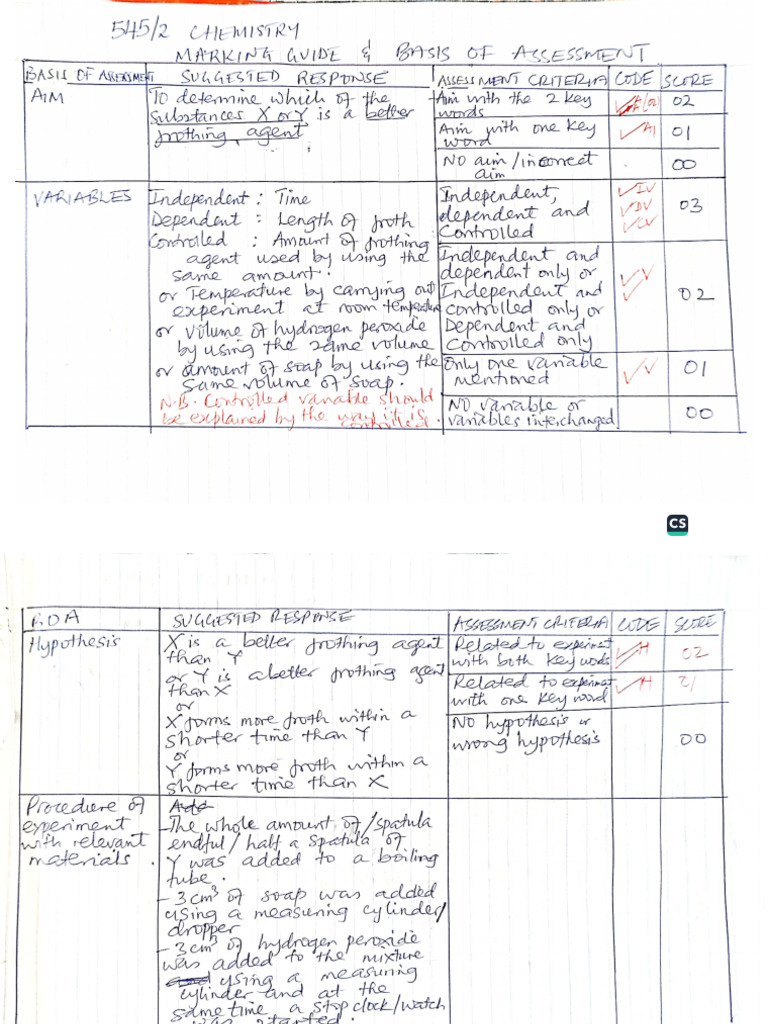 545/2 CHEMISTRY
MARKING GUIDE & BASIS OF ASSESSMENT
BASIS OF ASSESSMENT SUGGESTED RESPONSE ASSESSMENT CRITERIA CODE SCORE
AIM
To determine which of the
substances X or Y is a better
frothing agent
Aim with the 2 key
words
02
Aim with one key
word
✓A1
01
NO aim/incorrect
aim
00
VARIABLES
Independent : Time
Dependent : Length of froth
Controlled : Amount of frothing
agent used by using the
same amount.
or Temperature by carrying out
experiment at room temperature
or volume of hydrogen peroxide
by using the same volume
or amount of soap by using the
same volume of soap.
N.B. Controlled variable should
be explained by the way it is
controlled
Independent,
dependent and
Controlled
✓IV
✓DV
✓CV
03
Independent and
dependent only or
Independent and
controlled only or
Dependent and
controlled only
✓V
✓
02
Only one variable
mentioned
✓V
01
NO variable or
variables interchanged
00
CS
BOA SUGGESTED RESPONSE ASSESSMENT CRITERIA CODE SCORE
Hypothesis
X is a better frothing agent
than Y
or Y is a better frothing agent
than X
or
X forms more froth within a
shorter time than Y
or
Y forms more froth within a
shorter time than X
Related to experimat
with both key words
✓H
02
Related to experimat
with one key word
✓H
01
NO hypothesis or
wrong hypothesis
00
Procedure of
experiment
with relevant
materials.
Add
- The whole amount of/spatula
endful/half a spatula of
Y was added to a boiling
tube.
- 3cm³ of soap was added
using a measuring cylinder/
dropper
- 3cm³ of hydrogen peroxide
was added to the mixture
and using a measuring
cylinder and at the
same time a stop clock/watch
was started.